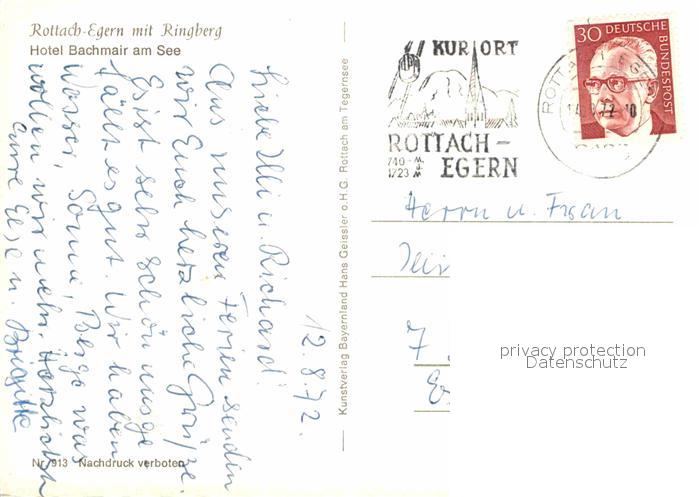 Rottach-Egern mit Ringberg
Hotel Bachmair am See
12.8.72.
Liebe Illi u. Richard!
Aus unseren Ferien senden
wir Euch herzliche Grüße.
Es ist sehr schön und ge-
fällt es gut. Wir haben
Wasser, Sonne, Berge was
wollen wir mehr. Herzlichst
Eure Else u. Brigitte
Nr. 913 Nachdruck verboten
Kunstverlag Bayernland Hans Geissler o.H.G. Rottach am Tegernsee
KURORT
ROTTACH-
740-M
1723 M
EGERN
ROTTACH-EGERN
30 DEUTSCHE
BUNDESPOST
Herrn u. Frau
7
privacy protection
Datenschutz